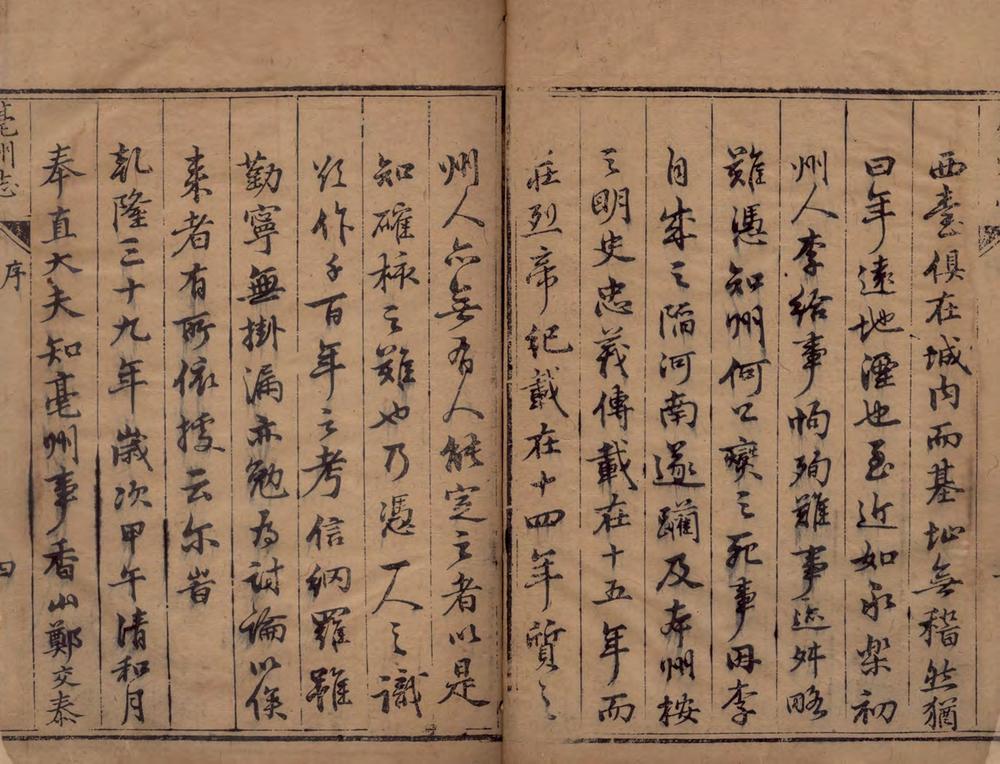 西臺俱在城內而基址無稽然猶
曰年遠地湮也至近如永樂初
州人李給事恂殉難事迹舛略
難憑知州何口爕之死事因李
自成之陷河南遂躪及本州按
之明史忠義傳載在十五年而
莊烈帝紀載在十四年質之
州人亦無有人能定之者以是
知確核之難也乃憑一人之識
欲作千百年之考信網羅雖
勤寧無掛漏亦勉為討論以俟
來者有所依據云尔旹
乾隆三十九年歲次甲午清和月
奉直大夫知亳州事香山鄭交泰
亳州志
序
四